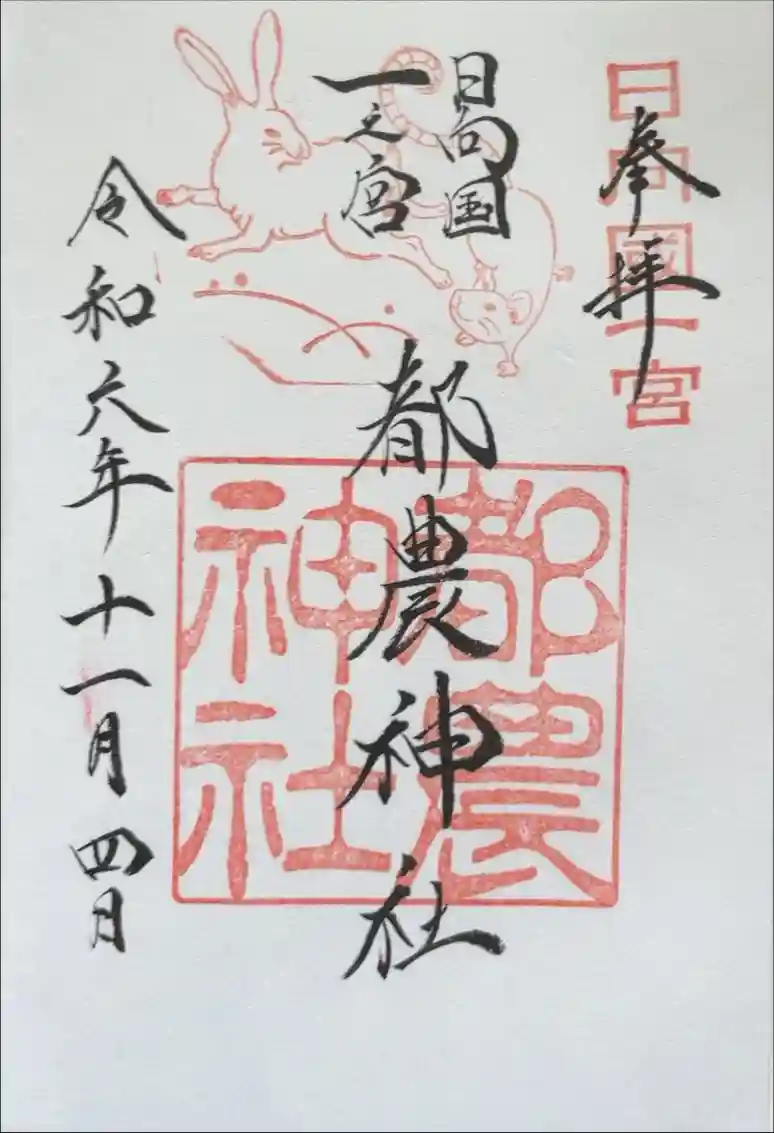 奉拝
日向國一宮
日向国
一之宮
都農神社
都農
神社
令和六年十一月四日